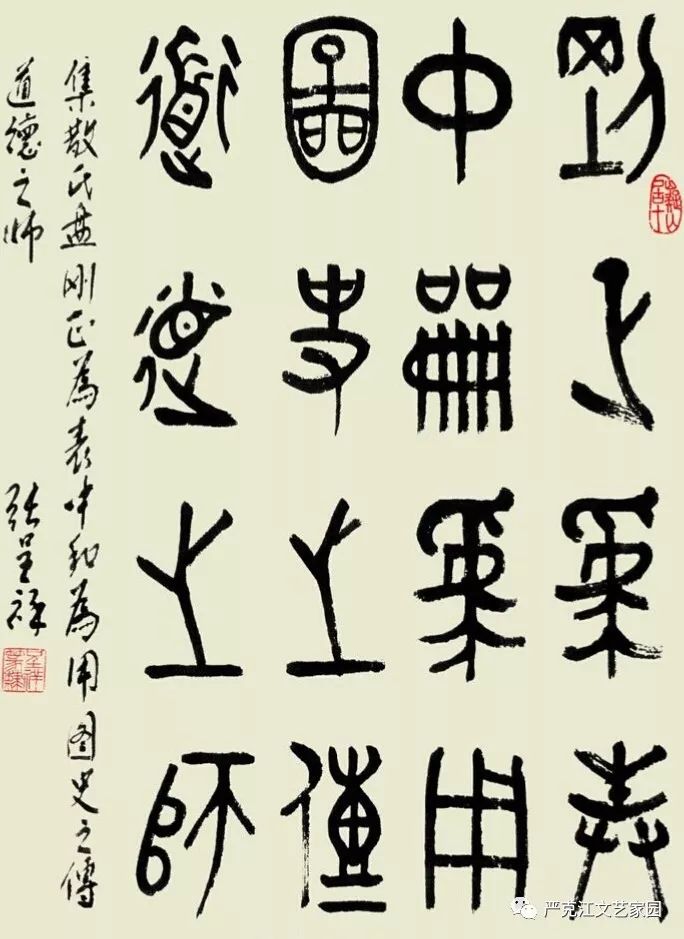 刚正為表
中和為用
图史之傳
道德之师
集散氏盘刚正為表中和為用图史之傳
道德之师
张呈祥
严克江文艺家园